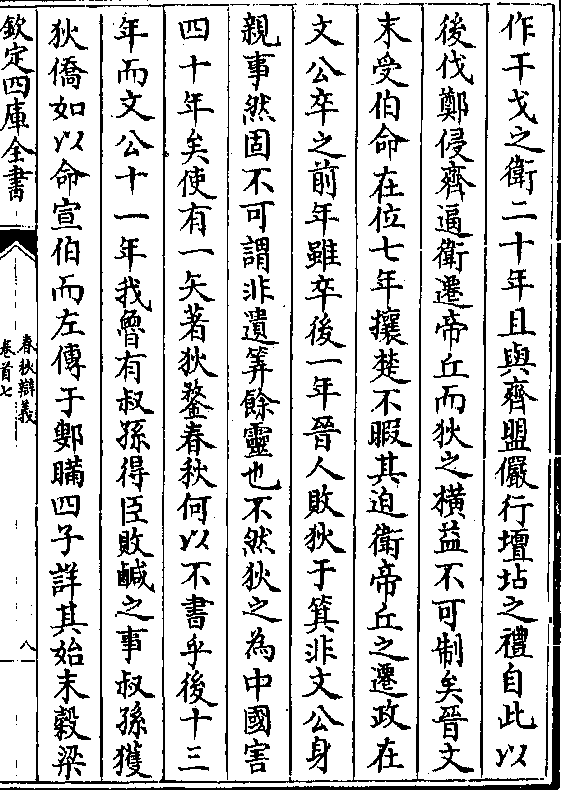 作干戈之衛二十年且與齊盟儼行壇坫之禮自此以
後伐鄭侵齊逼衛遷帝丘而狄之橫益不可制矣晉文
末受伯命在位七年攘楚不暇其迫衛帝丘之遷政在
文公卒之前年雖卒後一年晉人敗狄于箕非文公身
親事然固不可謂非遺筭餘靈也不然狄之為中國害
四十年矣使有一矢著狄鍪春秋何以不書乎後十三
年而文公十一年我魯有叔孫得臣敗鹹之事叔孫獲
狄僑如以命宣伯而左傳于鄋瞞四子詳其始末穀梁
欽定四庫全書
春秋辯義
卷首七
八